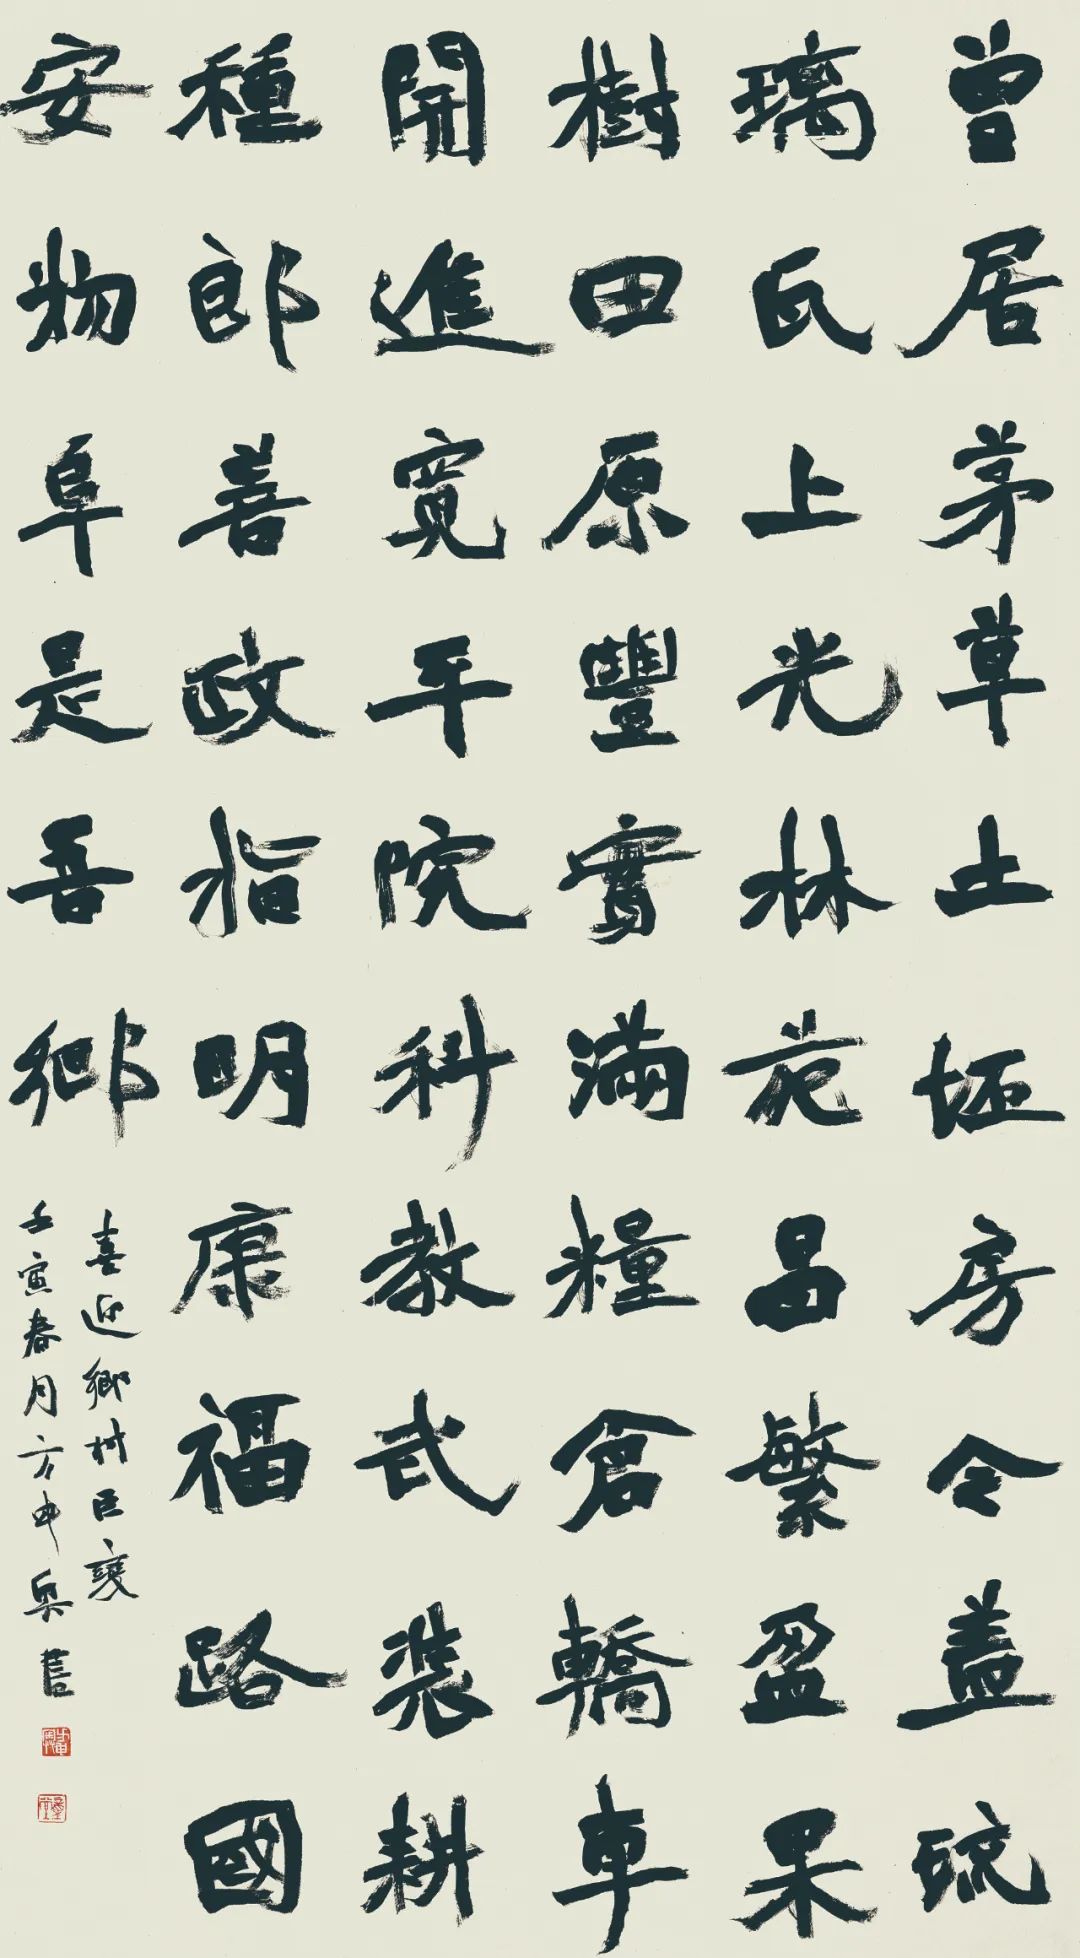 曾居茅草土坯房今蓋琉
璃瓦上光林苑昌繁盈果
樹田原豐實滿糧倉轎車
開進寬平院科教武裝耕
種郎善政指明康福路國
安物阜是吾鄉
喜迎鄉村巨變
壬寅春月方中吳書